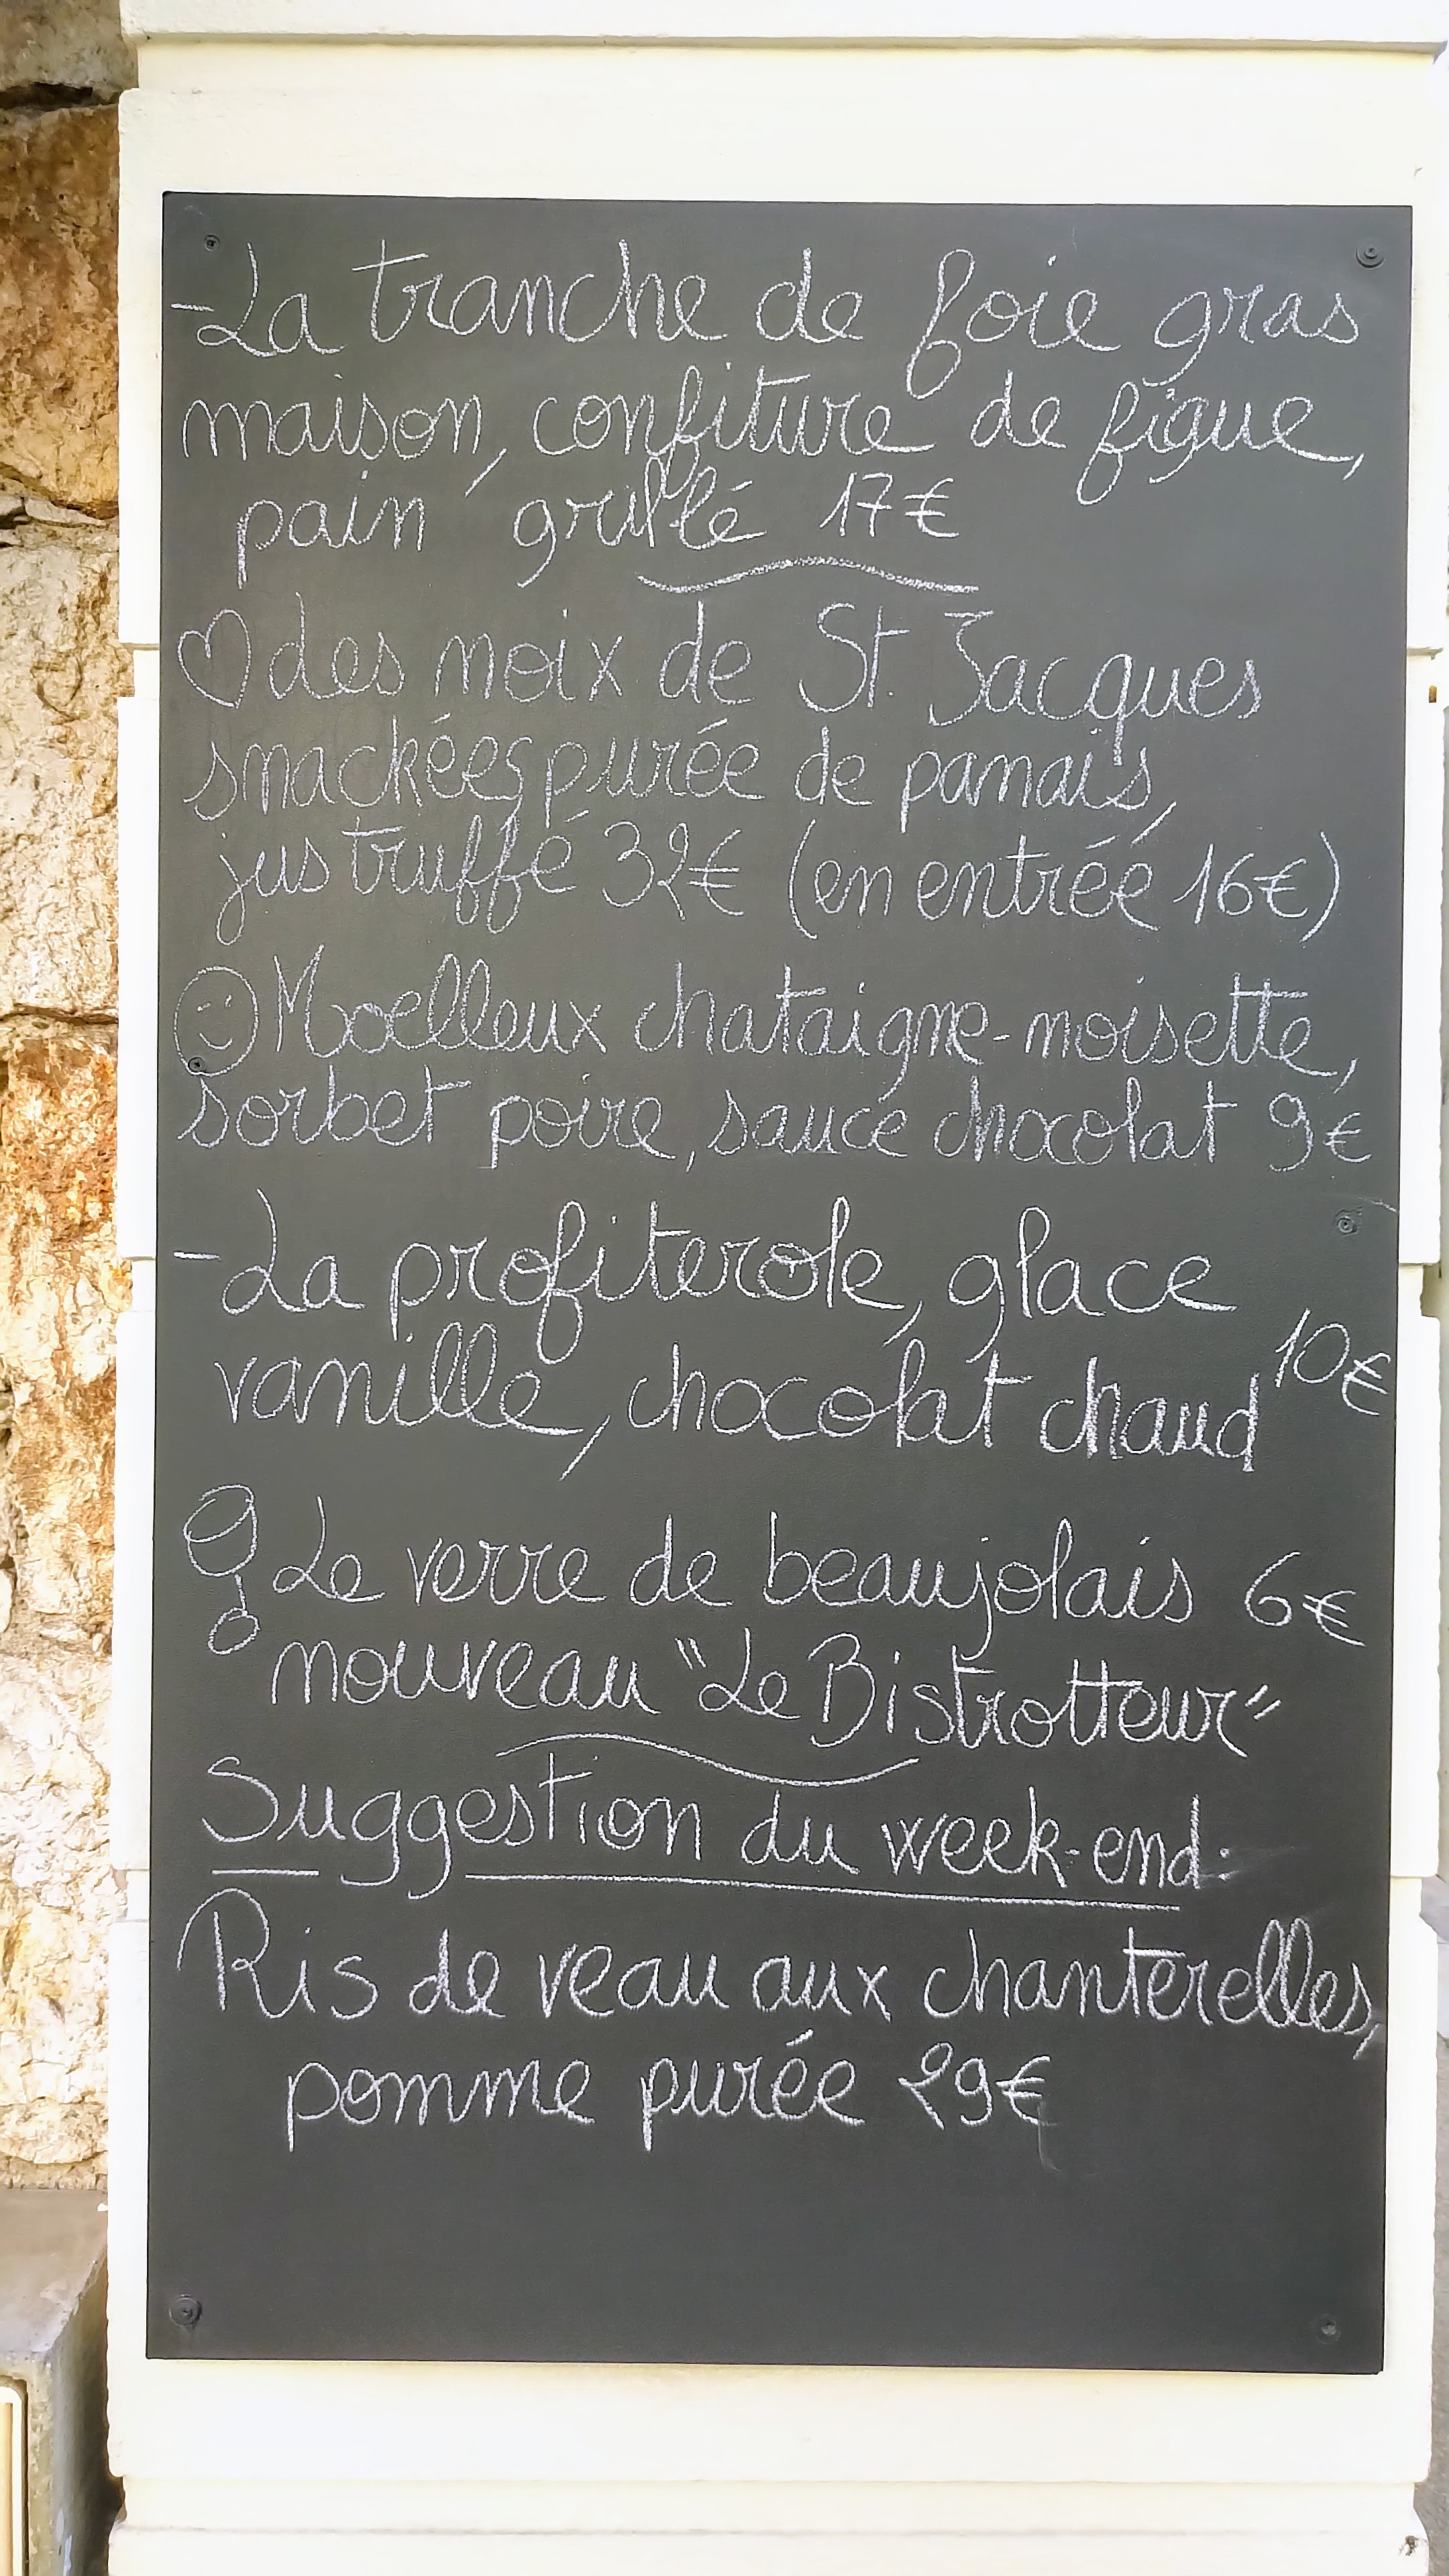 -La tranche de foie gras
maison, confiture de figue,
pain grillé 17€
des noix de St. Jacques
smackées, purée de panais,
jus truffé 32€ (en entrée 16€)
Moelleux chataigne-noisette,
sorbet poire, sauce chocolat 9€
-La profiterole, glace
vanille, chocolat chaud 10€
Le verre de beaujolais 6€
nouveau "Le Bistrotteur"
Suggestion du week-end:
Ris de veau aux chanterelles,
pomme purée 29€